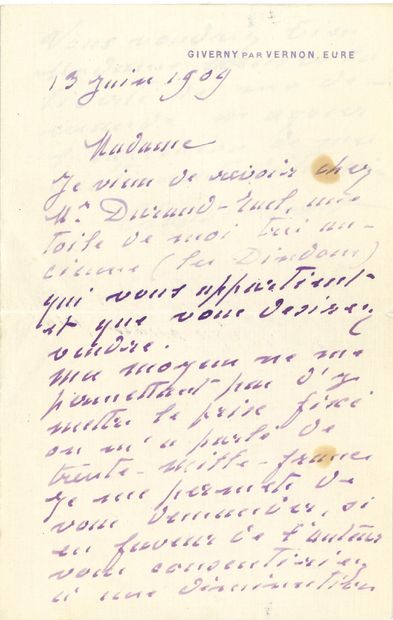 GIVERNY PAR VERNON, EURE
13 juin 1909
Madame
Je viens de revoir chez
Mr Durand-Ruel, une
toile de moi très an-
cienne (les Dindons)
qui vous appartient
et que vous désirez
vendre.
mes moyens ne me
permettant pas d'y
mettre le prix fixé
on m'a parlé de
trente-mille-francs
Je me permets de
vous demander, si
en faveur de l'auteur
vous consentiriez
à une diminution